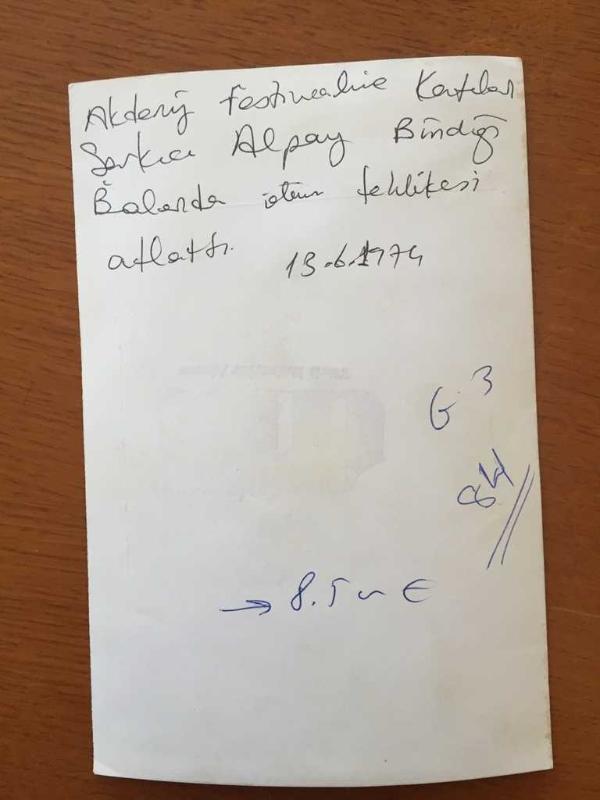 Akdeniz Festivaline Katılan
Şarkıcı Alpay Bindiği
Balonda ölüm tehlikesi
atlattı.
13.6.1974
G 3
→ 8.5